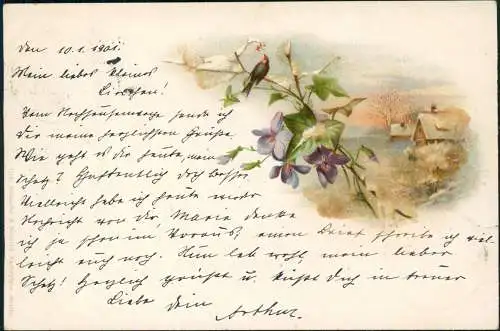 den 10.1.1901.
Mein liebes kleines
Lieschen!
Vom Nachhausewege sende ich
Dir meine herzlichsten Grüße.
Wie geht es Dir heute, mein
Schatz? Hoffentlich doch besser
Vielleicht habe ich heute wieder
Nachricht von Dir. Meine
ich ja schon im Voraus, einen Brief schreibe ich viel
leicht auch noch. Nun leb wohl, mein lieber
Schatz! Herzlich grüßt u. küßt Dich in treuer
Liebe Dein
Arthur.